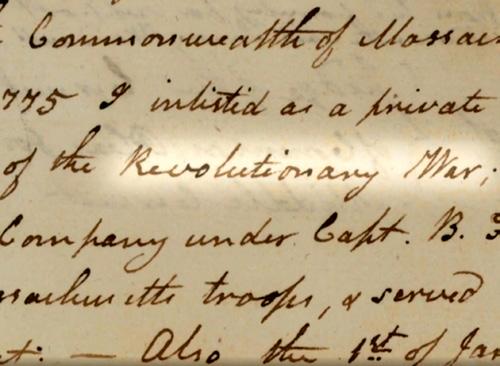 Commonwealth of Massac
775 I inlisted as a private
of the Revolutionary War;
Company under Capt. B.
ssachusetts troops, & served
t. — Also the 1st of Jan